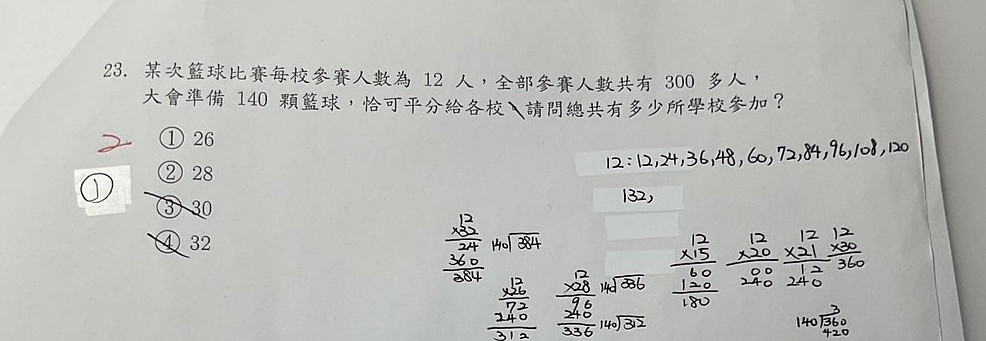 23. 某次籃球比賽每校參賽人數為 12 人,全部參賽人數共有 300 多人,
大會準備 140 顆籃球,恰可平分給各校、請問總共有多少所學校參加?
2
① 26
② 28
①
③ 30
④ 32
12:12,24,36,48,60,72,84,96,108,120
132,
12
×32
24
360
384
140 384
12
×26
72
240
312
12
×28
96
240
336
140 336
140 312
12
×15
60
120
180
12
×20
00
240
12
×21
12
240
12
×30
360
3
140 360
420